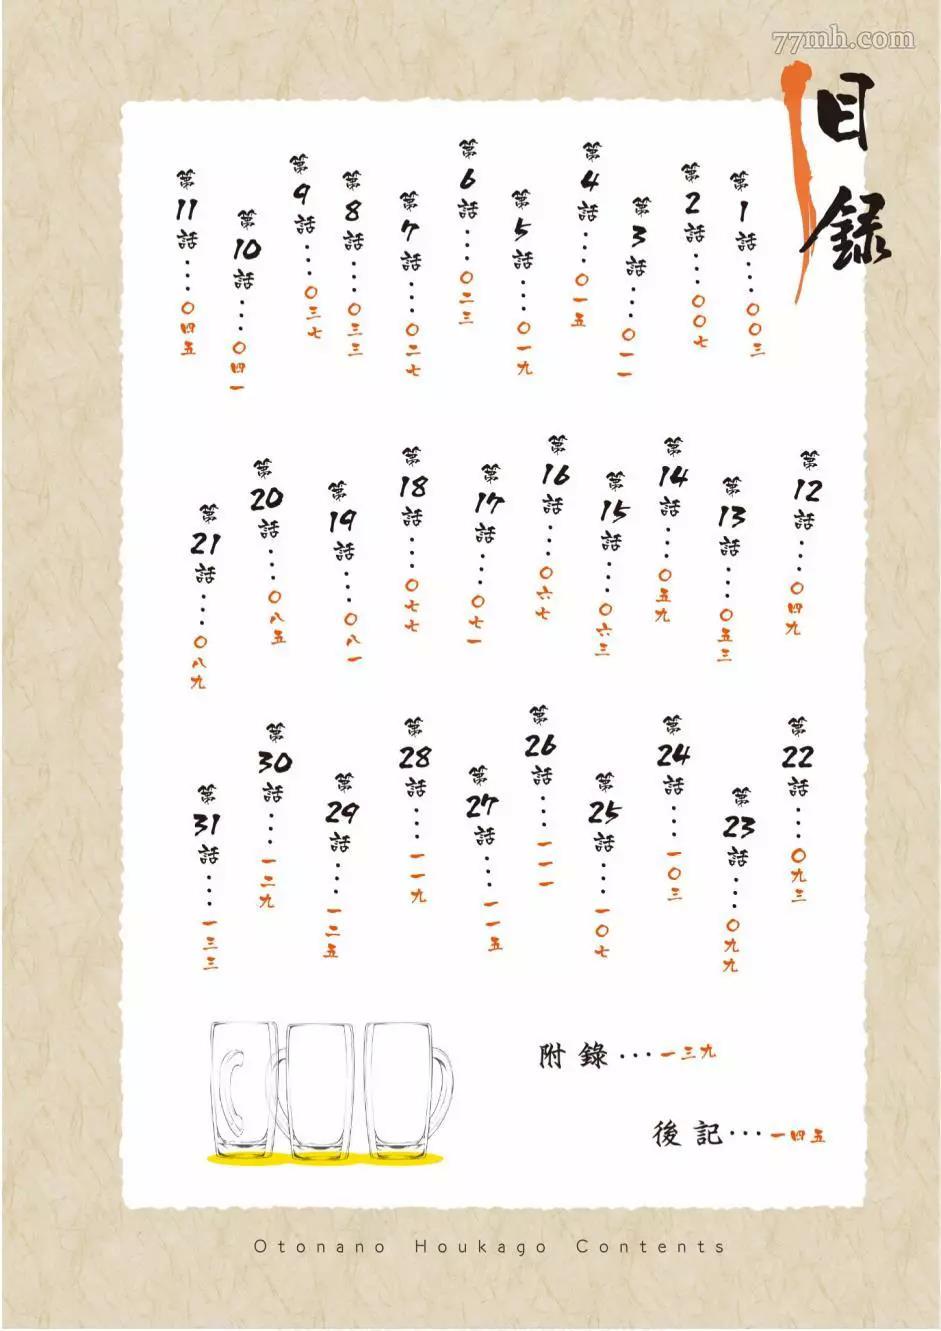 77mh.com
目録
第1話・・・・〇〇三
第2話・・・・〇〇七
第3話・・・・〇一一
第4話・・・・〇一五
第5話・・・・〇一九
第6話・・・・〇二三
第7話・・・・〇二七
第8話・・・・〇三三
第9話・・・・〇三七
第10話・・・・〇四一
第11話・・・・〇四五
第12話・・・・〇四九
第13話・・・・〇五三
第14話・・・・〇五九
第15話・・・・〇六三
第16話・・・・〇六七
第17話・・・・〇七一
第18話・・・・〇七七
第19話・・・・〇八一
第20話・・・・〇八五
第21話・・・・〇八九
第22話・・・・〇九三
第23話・・・・〇九九
第24話・・・・一〇三
第25話・・・・一〇七
第26話・・・・一一一
第27話・・・・一一五
第28話・・・・一一九
第29話・・・・一二五
第30話・・・・一二九
第31話・・・・一三三
附錄・・・一三九
後記・・・一四五
Otonano Houkago Contents